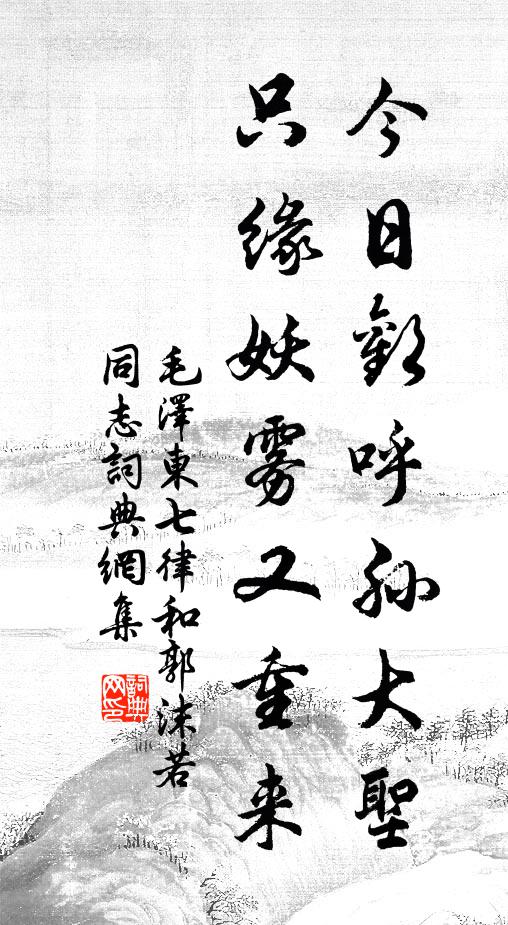 今日歡呼孫大聖
只緣妖霧又重来
毛澤東七律和郭沫若
同志詞典網集
詞典
网印